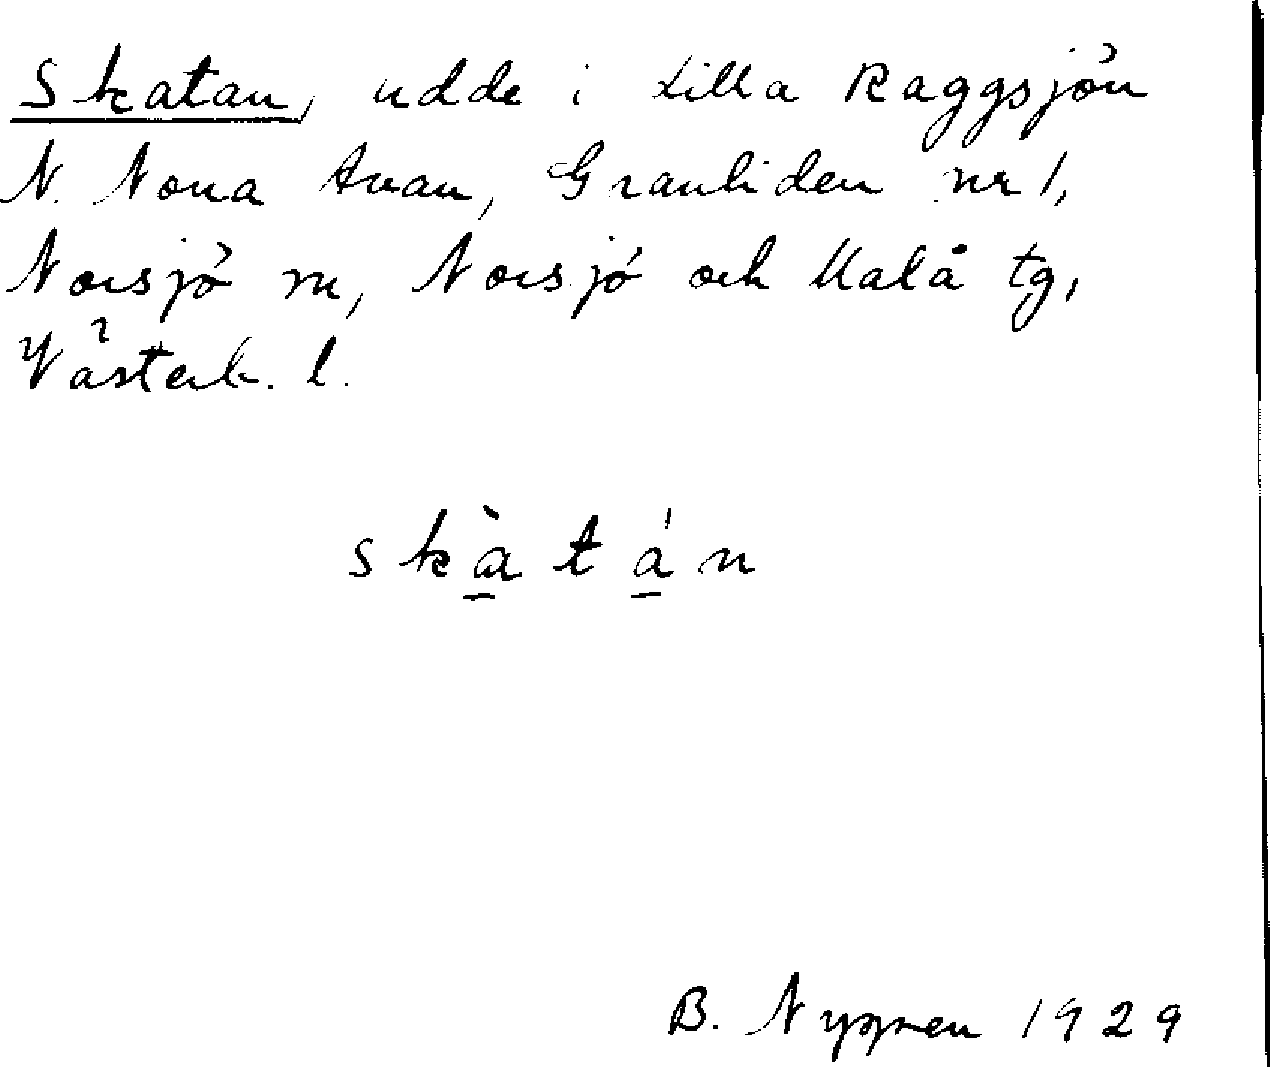 Skatan, udde i Lilla Raggsjön
N. Norra Avan, Granliden nr 1,
Norsjö sn, Norsjö och Malå tg,
Västerb. l.
skàtán
B. Nygren 1929